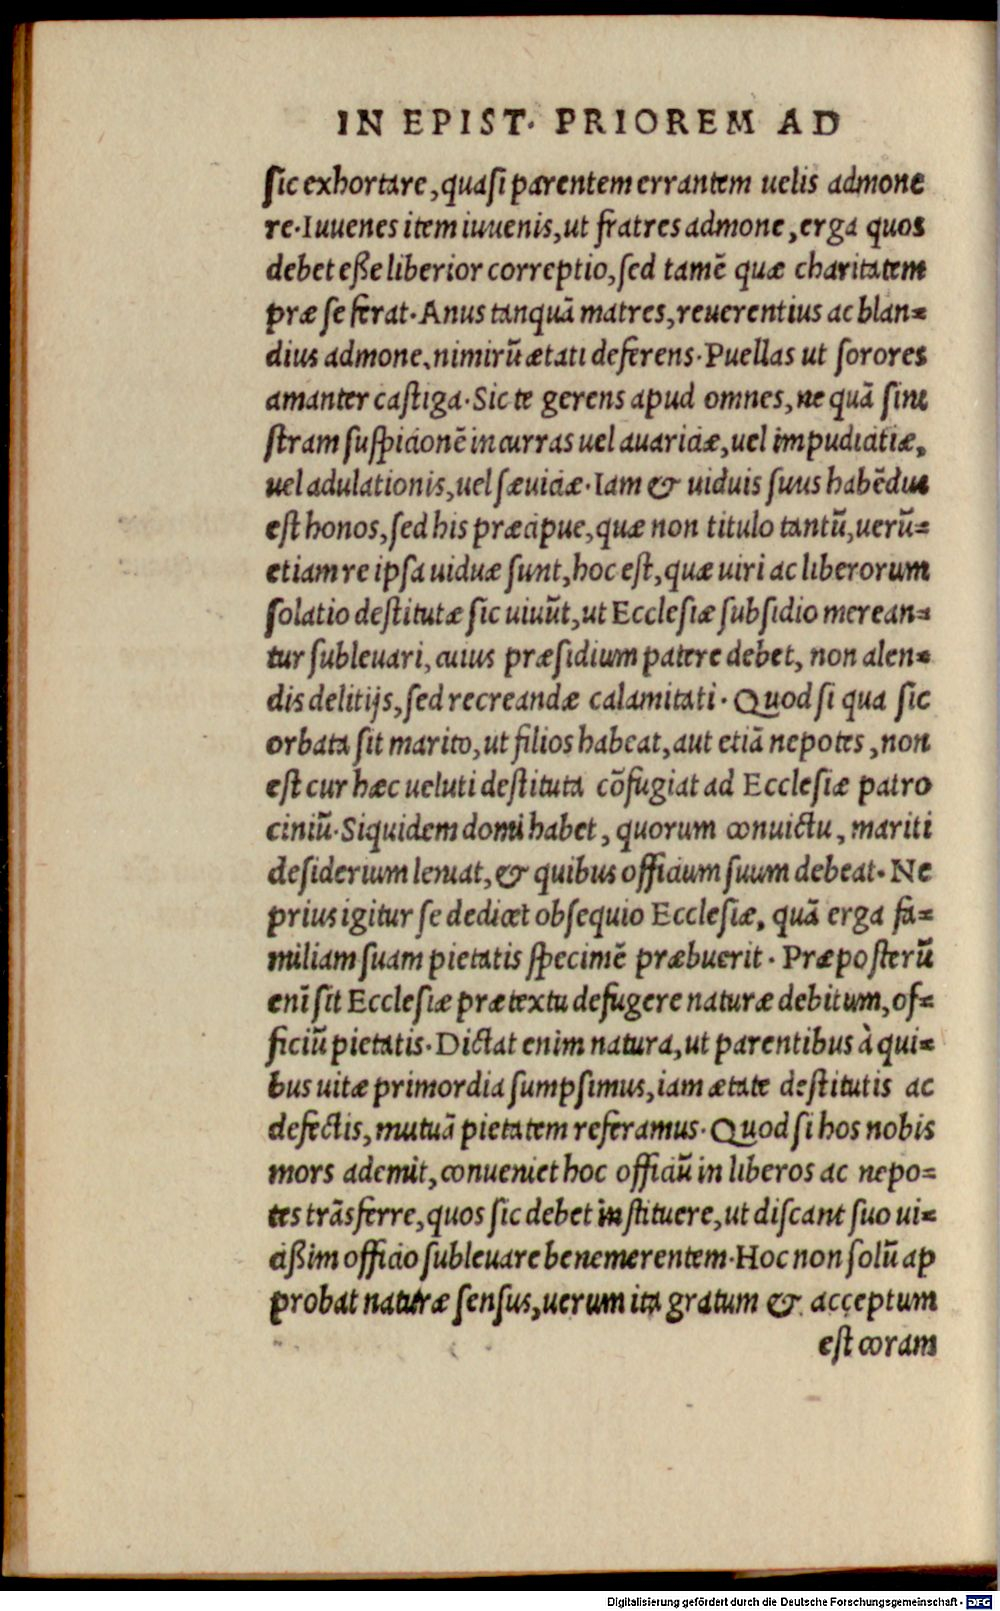 IN EPIST. PRIOREM AD
sic exhortare, quasi parentem errantem uelis admone
re. Iuuenes item iuuenis, ut fratres admone, erga quos
debet eße liberior correptio, sed tamē quæ charitatem
præ se ferat. Anus tanquā matres, reuerentius ac blan=
dius admone, nimirū ætati deferens. Puellas ut sorores
amanter castiga. Sic te gerens apud omnes, ne quā sini
stram suspicionē incurras uel auariciæ, uel impudicitiæ,
uel adulationis, uel sæuiciæ. Iam & uiduis suus habēdus
est honos, sed his præcipue, quæ non titulo tantū, uerū=
etiam re ipsa uiduæ sunt, hoc est, quæ uiri ac liberorum
solatio destitutæ sic uiuūt, ut Ecclesiæ subsidio merean=
tur subleuari, cuius præsidium patere debet, non alen=
dis delitijs, sed recreandæ calamitati. Quod si qua sic
orbata sit marito, ut filios habeat, aut etiā nepotes, non
est cur hæc ueluti destituta cōfugiat ad Ecclesiæ patro
ciniū. Siquidem domi habet, quorum conuictu, mariti
desiderium leniat, & quibus officium suum debeat. Ne
prius igitur se dedicet obsequio Ecclesiæ, quā erga fa=
miliam suam pietatis specimē præbuerit. Præposterū
enī sit Ecclesiæ prætextu defugere naturæ debitum, of=
ficiū pietatis. Dictat enim natura, ut parentibus à qui=
bus uitæ primordia sumpsimus, iam ætate destitutis ac
defectis, mutuā pietatem referamus. Quod si hos nobis
mors ademit, conueniet hoc officiū in liberos ac nepo=
tes trāsferre, quos sic debet instituere, ut discant suo ui=
cißim officio subleuare benemerentem. Hoc non solū ap
probat naturæ sensus, uerum ita gratum & acceptum
est coram
Digitalisierung gefördert durch die Deutsche Forschungsgemeinschaft - DFG